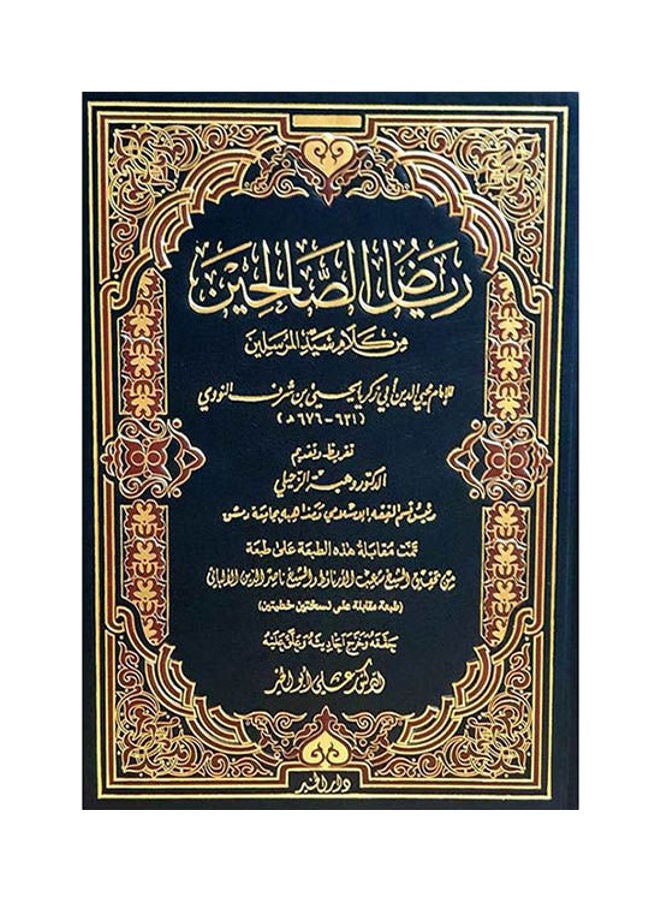 رياض الصالحين
من كلام سيد المرسلين
للإمام محيي الدين أبي زكريا يحيى بن شرف النووي
(٦٣١ - ٦٧٦ هـ)
تقريظ وتقديم
الدكتور وهبة الزحيلي
رئيس قسم الفقه الإسلامي ومذاهبه بجامعة دمشق
تمت مقابلة هذه الطبعة على طبعة
من تحقيق الشيخ شعيب الأرناؤط والشيخ ناصر الدين الألباني
(طبعة مقابلة على نسختين خطيتين)
حققه وخرج أحاديثه وعلق عليه
الدكتور علي أبو الخير
دار الخير